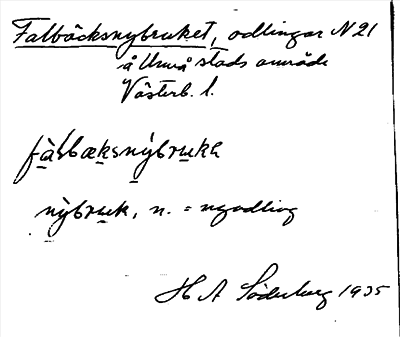 Falbäcksnybruket, odlingar N 21
å Umeå stads område
Västerb. l.
fàlbæksnýbrukə
nỳbruk, n. = nyodling
H A Söderberg 1935